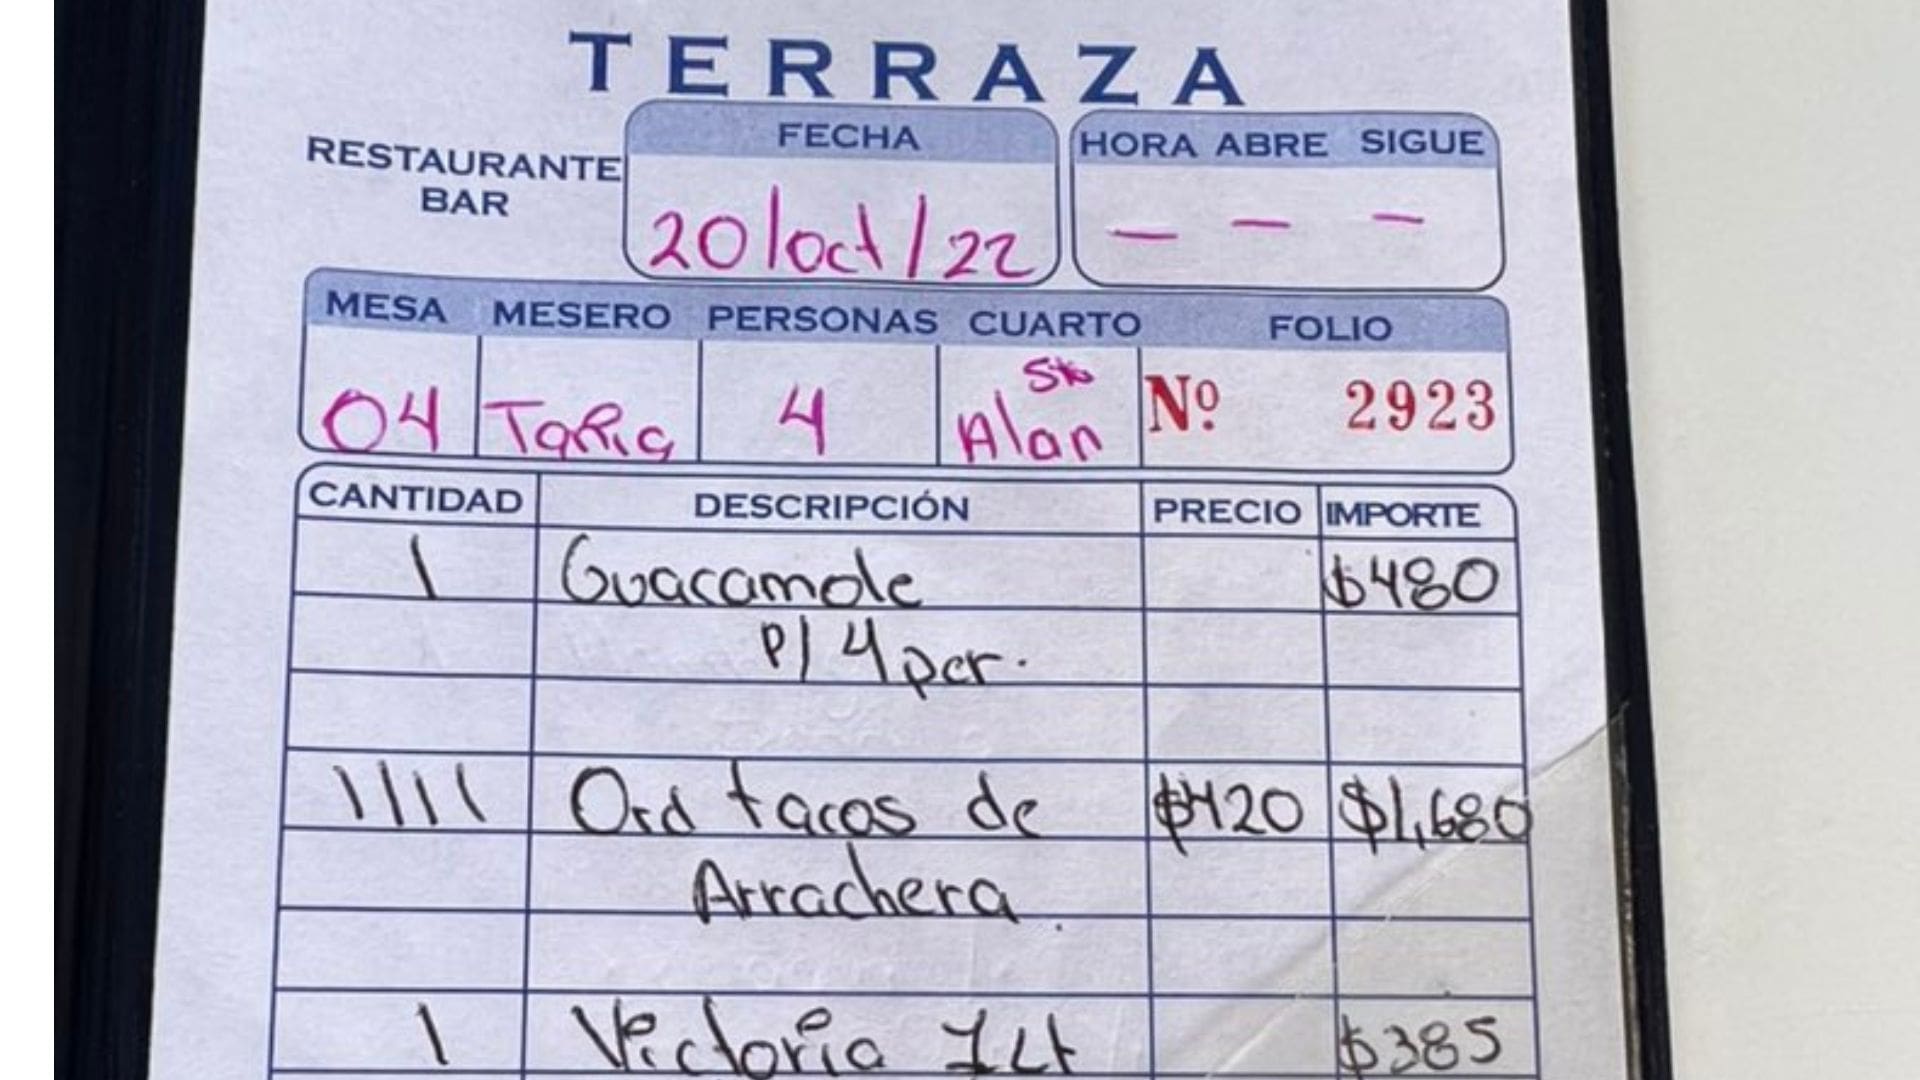 TERRAZA
RESTAURANTE
BAR
FECHA
20/oct/22
HORA ABRE SIGUE
— — —
MESA MESERO PERSONAS CUARTO FOLIO
04 4 Alan Nº 2923
CANTIDAD DESCRIPCIÓN PRECIO IMPORTE
1 Guacamole $480
P/ 4 per.
1111 Ord tacos de $420 $1,680
Arrachera.
1 Victoria 1Lt $385